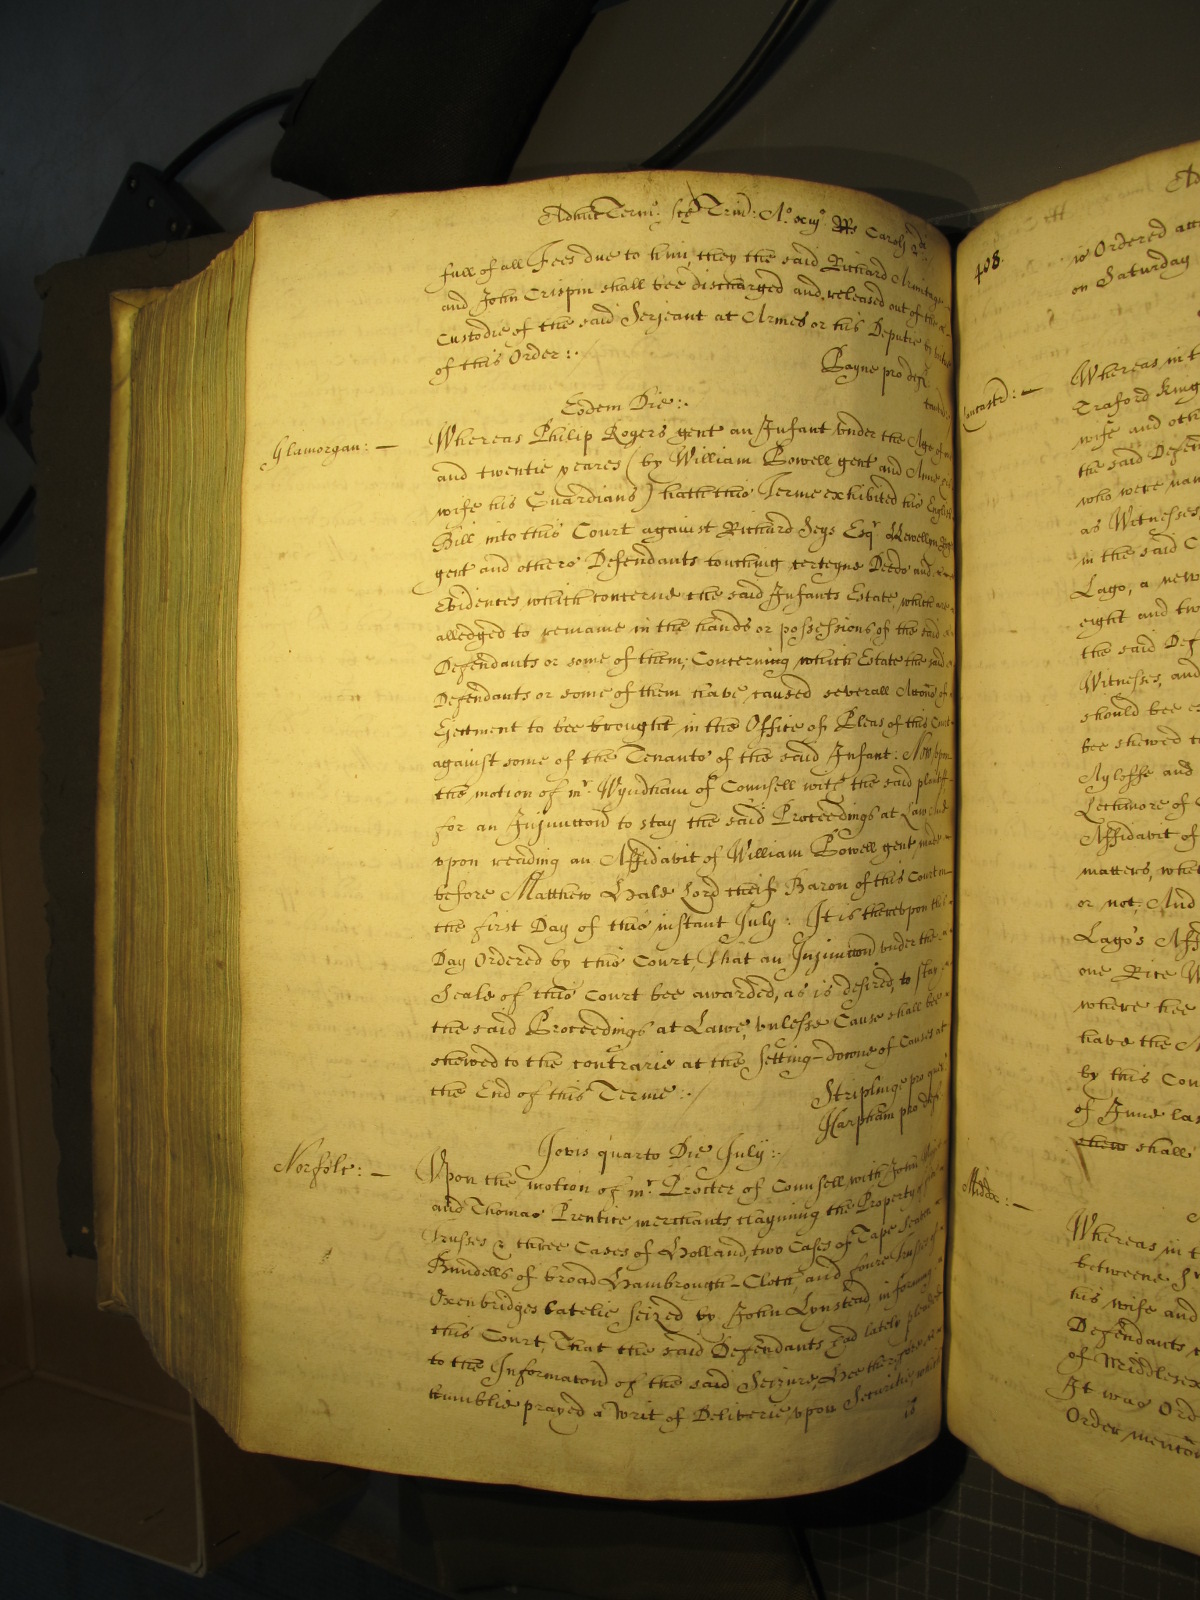 Adhuc Term: scē Trin: Ao xiijo Rs Caroli
full of all Fees due to him, they the said Richard Armitage
and John Crispin shall bee discharged and released out of the
Custodie of the said Serjeant at Armes or his Deputie by
of this Order:
Payne pro def
Eodem Die:
Glamorgan:
Whereas Philip Rogers gent an Infant vnder the Age of
and twentie yeares (by William Bowell gent and Anne
wife his Guardians) hath this Terme exhibited his English
Bill into this Court against Richard Seys Esqr Llewellyn
gent and others Defendants touching certeyne Deeds and
Evidences which concerne the said Infants Estate, which are
alledged to remaine in the hands or possessions of the said
Defendants or some of them; Concerning which Estate the said
Defendants or some of them have caused severall Accons of
Ejectment to bee brought in the Office of Pleas of this Court
against some of the Tenants of the said Infant: Now vpon
the motion of mr. Wyndham of Counsell with the said plaintiff
for an Injunction to stay the said Proceedings at Law, And
vpon reading an Affidavit of William Bowell gent made
before Matthew Hale Lord cheif Baron of this Court
the first Day of this instant July: It is therevpon this
Day Ordered by this Court, That an Injunction vnder the
Seale of this Court bee awarded, as is desired, to stay
the said Proceedings at Lawe, vnlesse Cause shall bee
shewed to the contrarie at the setting-downe of Causes at
the End of this Terme:
Striplinge pro quer
Harpham pro def
Jovis quarto Die July:
Norfolc:
Vpon the motion of mr. Procter of Counsell with John
and Thomas Prentice merchants clayming the Property of
trusses & three Cases of Holland, two Cases of Tape
Bundells of broad Hambrough-Cloth, and foure trusses of
Oxenbridges latelie seized by John Lynstead, informing
this Court, That the said Defendants had lately pleaded
to the Informacon of the said Seizure, Hee therefore
humblie prayed a Writ of Deliverie, vpon Securitie, which
is
408.
is Ordered
on Saturday
Lancastr:
Whereas in
Traford King
wife and
the said
who were
as Witnesses
in the said
Lago, a new
eight and
the said
Witnesses, and
should bee
bee shewed
Ayloffe and
Lechmore of
Affidavit of
matters,
or not; And
Lago's
one Rice
where hee
have the
by this
of June
shew shall
Middx:
Whereas in
betweene
his wife and
Defendants
of Middlesex
It was
Order